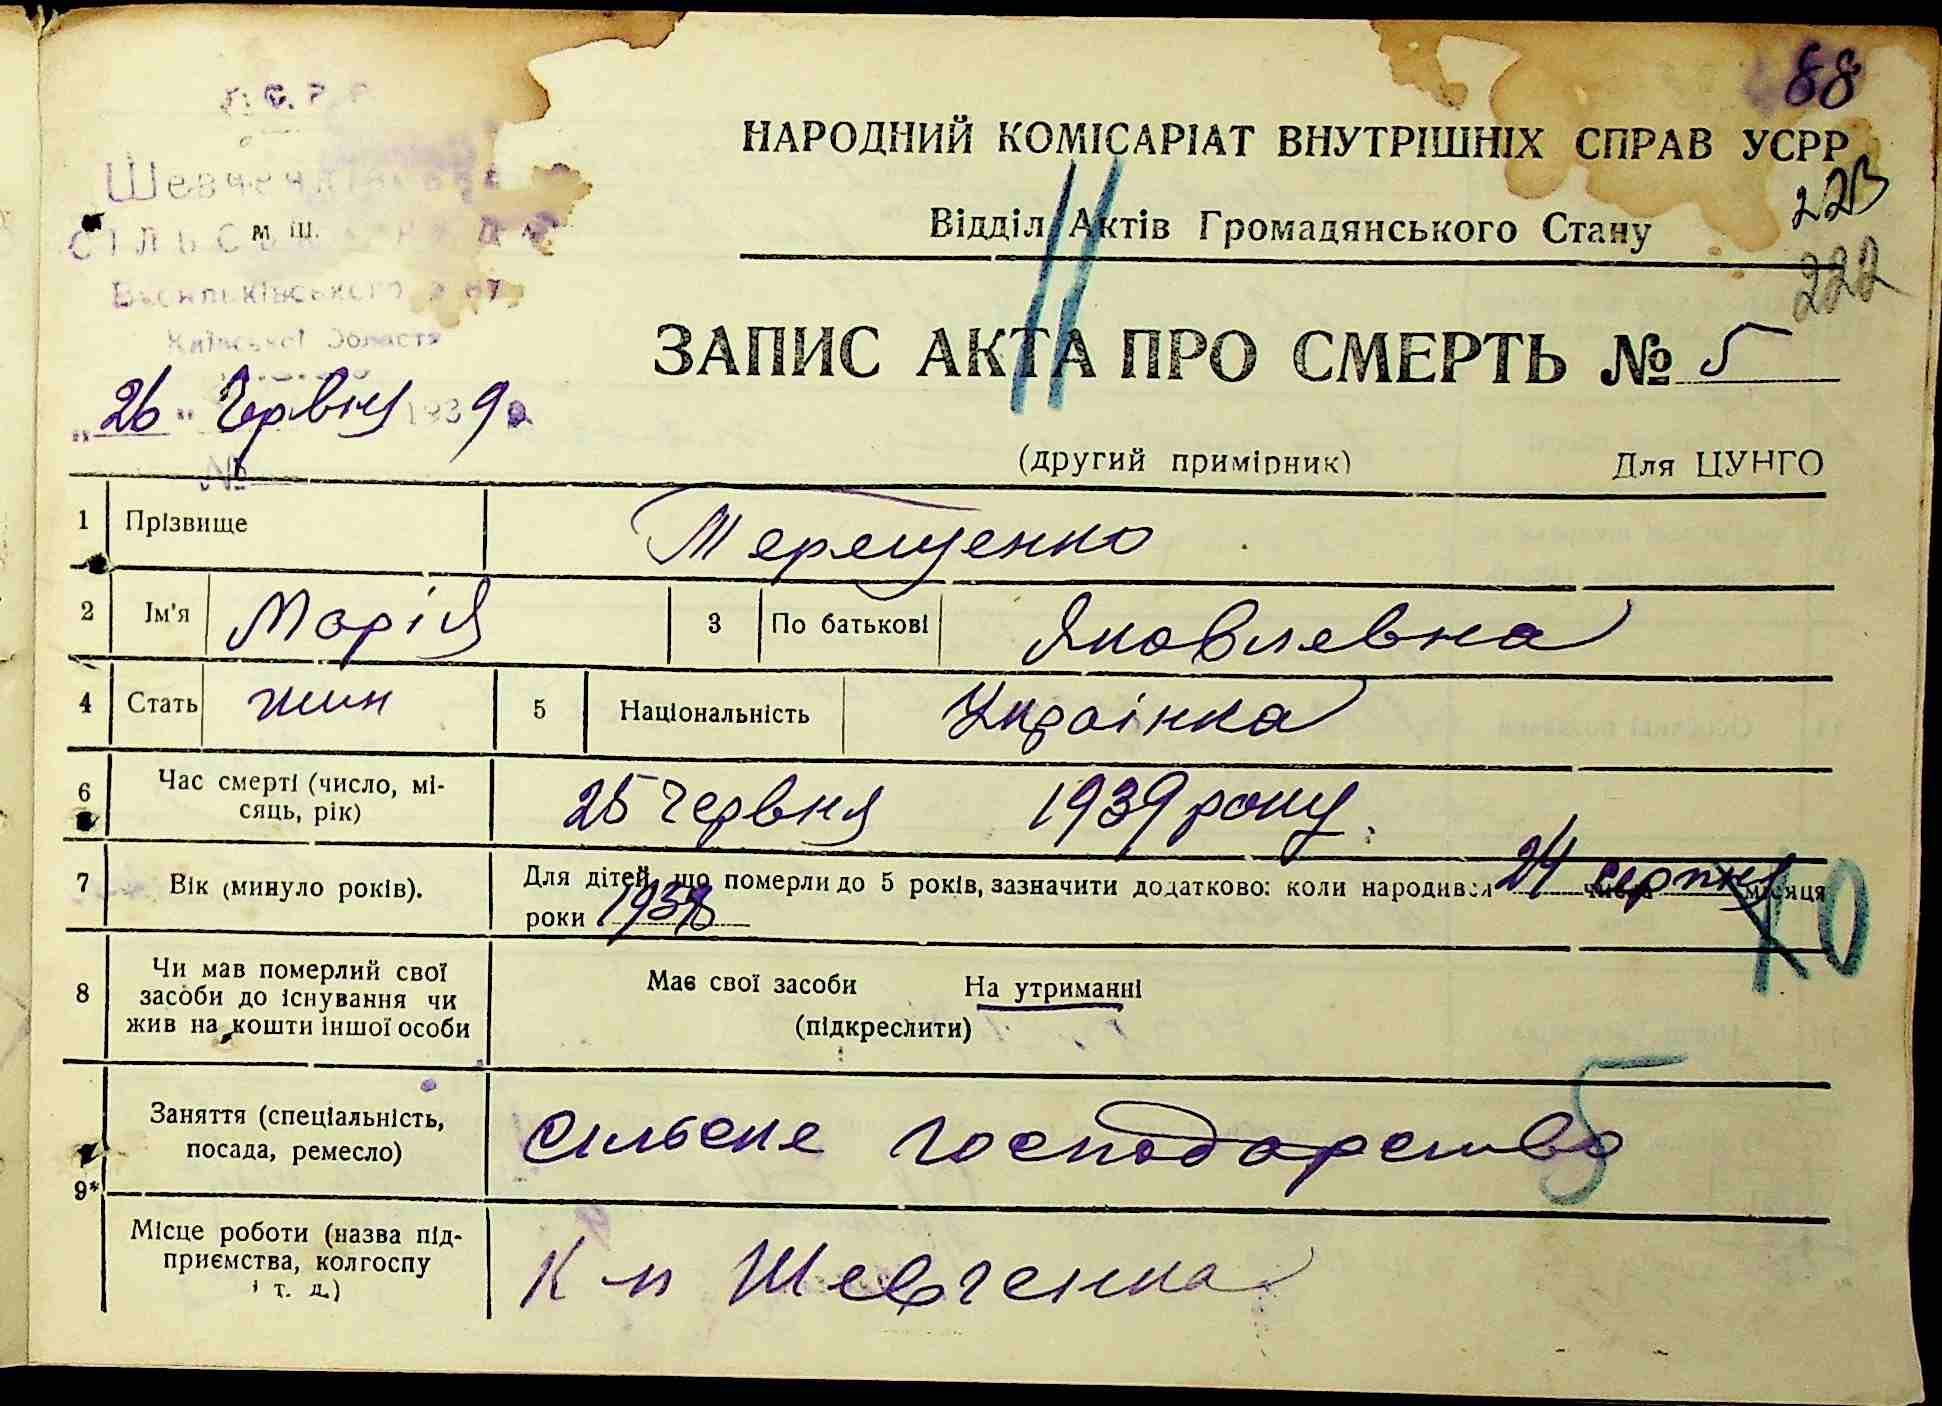 88
У. С. Р. Р.
НАРОДНИЙ КОМІСАРІАТ ВНУТРІШНІХ СПРАВ УСРР
Шевченківська
223
м. Ш.
Відділ Актів Громадянського Стану
СІЛЬСЬКА РАДА
222
Васильківського р-ну
Київської Области
ЗАПИС АКТА ПРО СМЕРТЬ № 5
„26" Червня 1939 р.
(другий примірник) Для ЦУНГО
№
1 Прізвище Терещенко
2 Ім'я Марія 3 По батькові Яковлевна
4 Стать жин 5 Національність Українка
6 Час смерті (число, мі-
сяць, рік) 25 Червня 1939 року.
7 Вік (минуло років). Для дітей, що померли до 5 років, зазначити додатково: коли народився 24 числа серпня місяця
роки 1938
10
8 Чи мав померлий свої
засоби до існування чи
жив на кошти іншої особи
Має свої засоби На утриманні
(підкреслити)
5
9* Заняття (спеціальність,
посада, ремесло) сільське господарство
Місце роботи (назва під-
приємства, колгоспу
і т. д.) К-п Шевченка